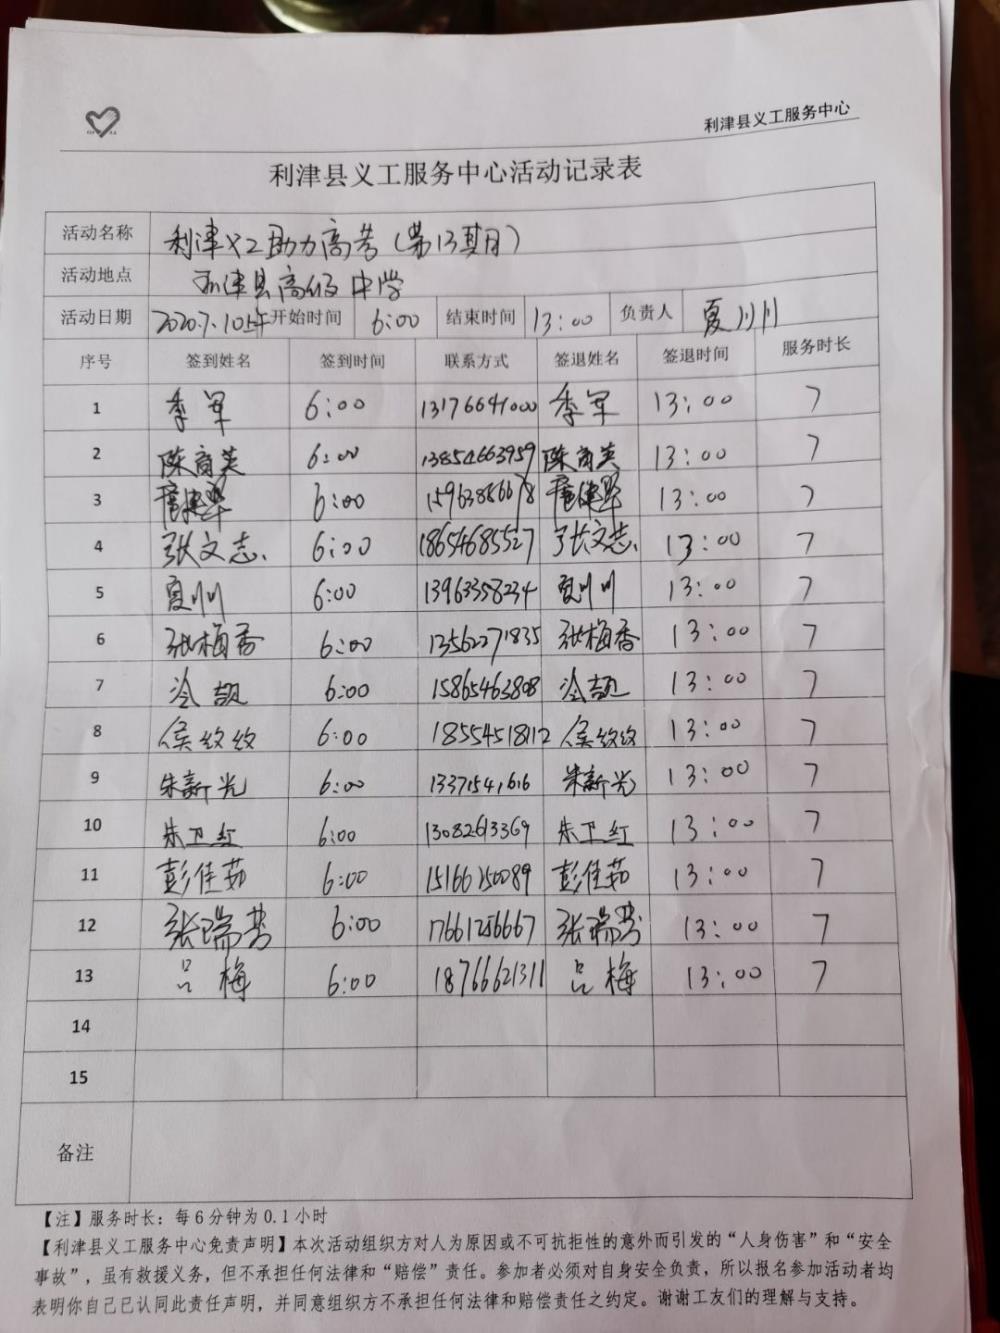 利津县义工服务中心
利津县义工服务中心活动记录表
活动名称 利津义工助力高考(第13期)
活动地点 利津县高级中学
活动日期 2020.7.10上午 开始时间 6:00 结束时间 13:00 负责人 夏川川
序号 签到姓名 签到时间 联系方式 签退姓名 签退时间 服务时长
1 季军 6:00 13176641000 季军 13:00 7
2 陈商英 6:00 13854663959 陈商英 13:00 7
3 6:00 13:00 7
4 张文志 6:00 18654685527 张文志 13:00 7
5 夏川川 6:00 13963358234 夏川川 13:00 7
6 张梅香 6:00 13562271835 张梅香 13:00 7
7 冷靓 6:00 15865463808 冷靓 13:00 7
8 侯纹纹 6:00 18554518112 侯纹纹 13:00 7
9 朱新光 6:00 13371541616 朱新光 13:00 7
10 朱卫红 6:00 13082613369 朱卫红 13:00 7
11 彭佳茹 6:00 15166250089 彭佳茹 13:00 7
12 张瑞芸 6:00 17661286667 张瑞芸 13:00 7
13 吕梅 6:00 18766621311 吕梅 13:00 7
14
15
备注
【注】服务时长:每6分钟为0.1小时
【利津县义工服务中心免责声明】本次活动组织方对人为原因或不可抗拒性的意外而引发的“人身伤害”和“安全
事故”,虽有救援义务,但不承担任何法律和“赔偿”责任。参加者必须对自身安全负责,所以报名参加活动者均
表明你自己已认同此责任声明,并同意组织方不承担任何法律和赔偿责任之约定。谢谢工友们的理解与支持。